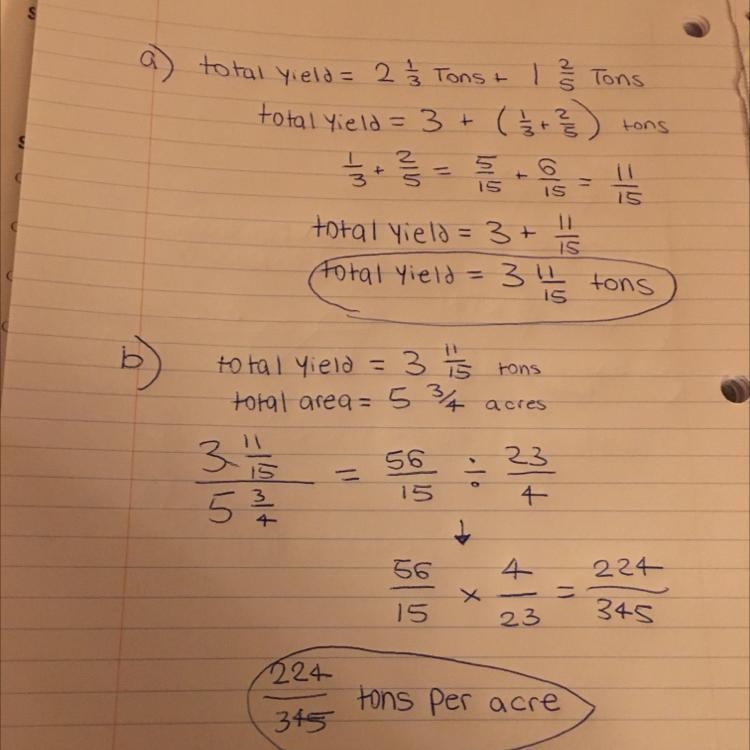 a) total yield = 2 1/3 Tons + 1 2/5 Tons
total yield = 3 + (1/3 + 2/5) tons
1/3 + 2/5 = 5/15 + 6/15 = 11/15
total yield = 3 + 11/15
total yield = 3 11/15 tons
b) total yield = 3 11/15 tons
total area = 5 3/4 acres
3 11/15 / 5 3/4 = 56/15 ÷ 23/4
↓
56/15 × 4/23 = 224/345
224/345 tons per acre